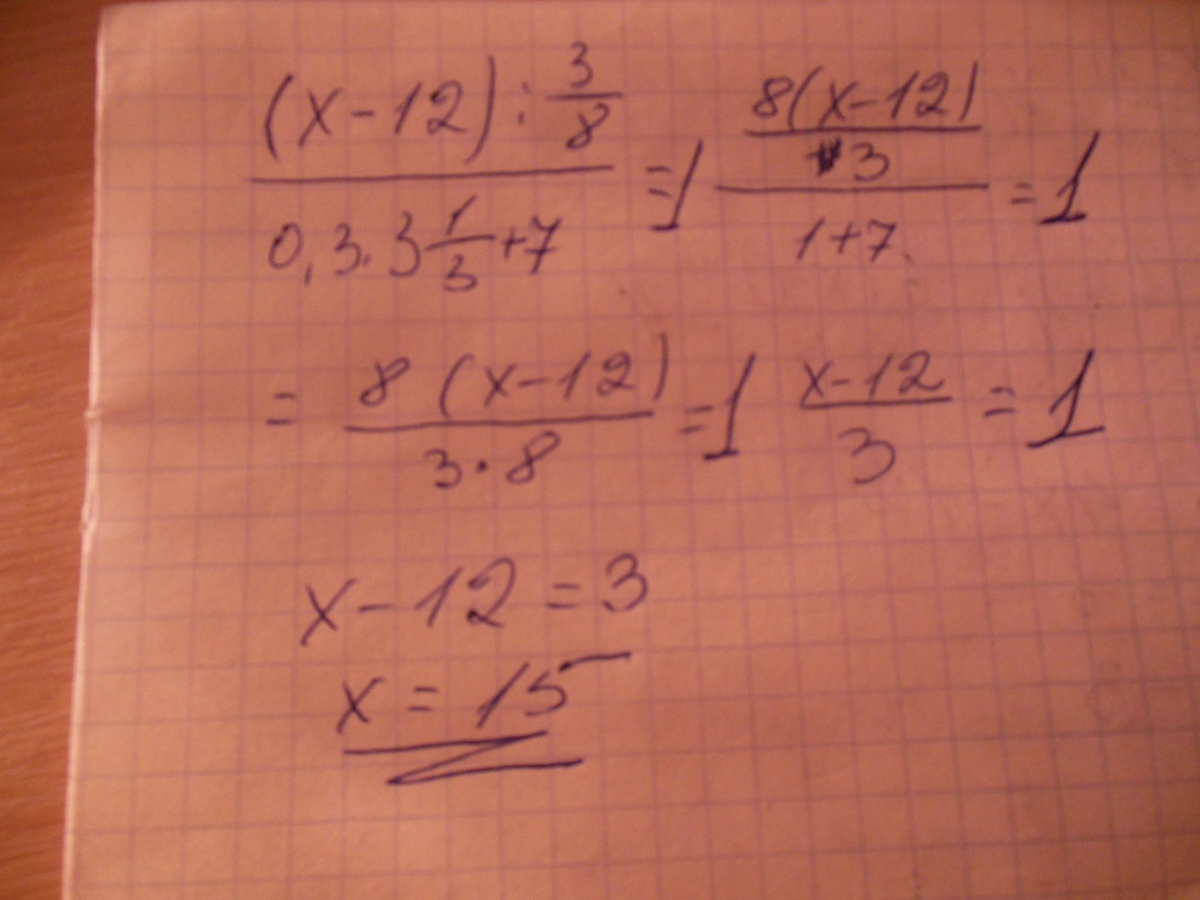 \frac{(x-12):\frac{3}{8}}{0,3\cdot3\frac{1}{3}+7}=1 \frac{\frac{8(x-12)}{3}}{1+7}=1
=\frac{8(x-12)}{3\cdot8}=1 \frac{x-12}{3}=1
x-12=3
x=15